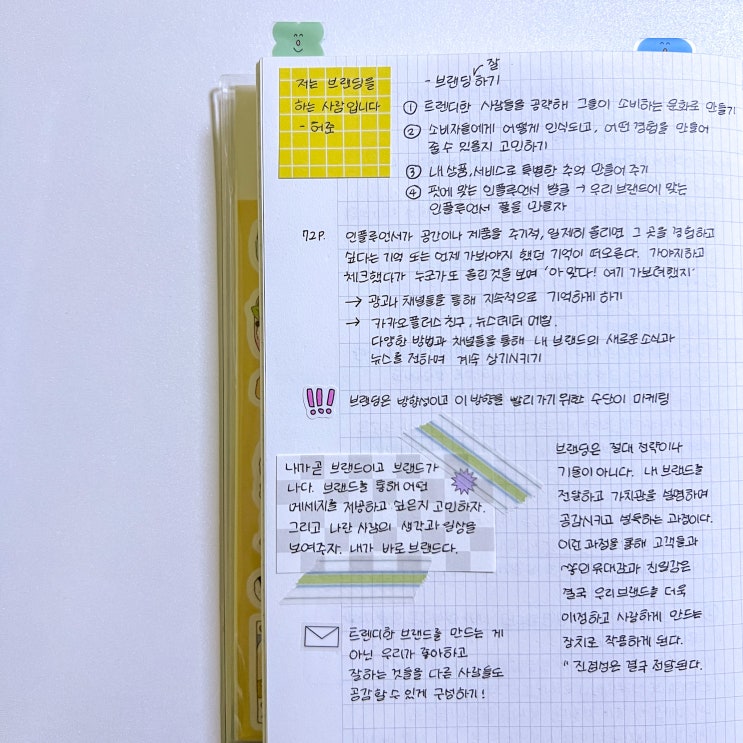 저는 브랜딩을
하는 사람입니다
- 허준
- 브랜딩 잘 하기
① 트렌디한 사람들을 공략해 그들이 소비하는 문화로 만들기
② 소비자들에게 어떻게 인식되고, 어떤 경험을 만들어
줄 수 있을지 고민하기
③ 내 상품, 서비스로 특별한 추억 만들어 주기
④ 핏에 맞는 인플루언서 발굴 → 우리 브랜드에 맞는
인플루언서 풀을 만들자
72P. 인플루언서가 공간이나 제품을 주기적, 일제히 올리면 그 곳을 경험하고
싶다는 기억 또는 언제 가봐야지 했던 기억이 떠오른다. 가야지하고
체크했다가 누군가 또 올린 것을 보며 '아 맞다! 여기 가보려했지'
→ 광고나 채널들을 통해 지속적으로 기억하게 하기
→ 카카오플러스친구, 뉴스레터 메일.
다양한 방법과 채널들을 통해 내 브랜드의 새로운 소식과
뉴스를 전하며 계속 상기시키기
!!! 브랜딩은 방향성이고 이 방향을 빨리 가기 위한 수단이 마케팅
내가 곧 브랜드이고 브랜드가
나다. 브랜드를 통해 어떤
메세지를 제공하고 싶은지 고민하자.
그리고 나란 사람의 생각과 일상을
보여주자. 내가 바로 브랜드다.
트렌디한 브랜드를 만드는 게
아닌 우리가 좋아하고
잘하는 것들을 다른 사람들도
공감할 수 있게 구성하기!
브랜딩은 절대 전략이나
기술이 아니다. 내 브랜드를
전달하고 가치관을 설명하며
공감시키고 설득하는 과정이다.
이런 과정을 통해 고객들과
쌓인 유대감과 친밀감은
결국 우리 브랜드를 더욱
인정하고 사랑하게 만드는
장치로 작용하게 된다.
" 진정성은 결국 전달된다.